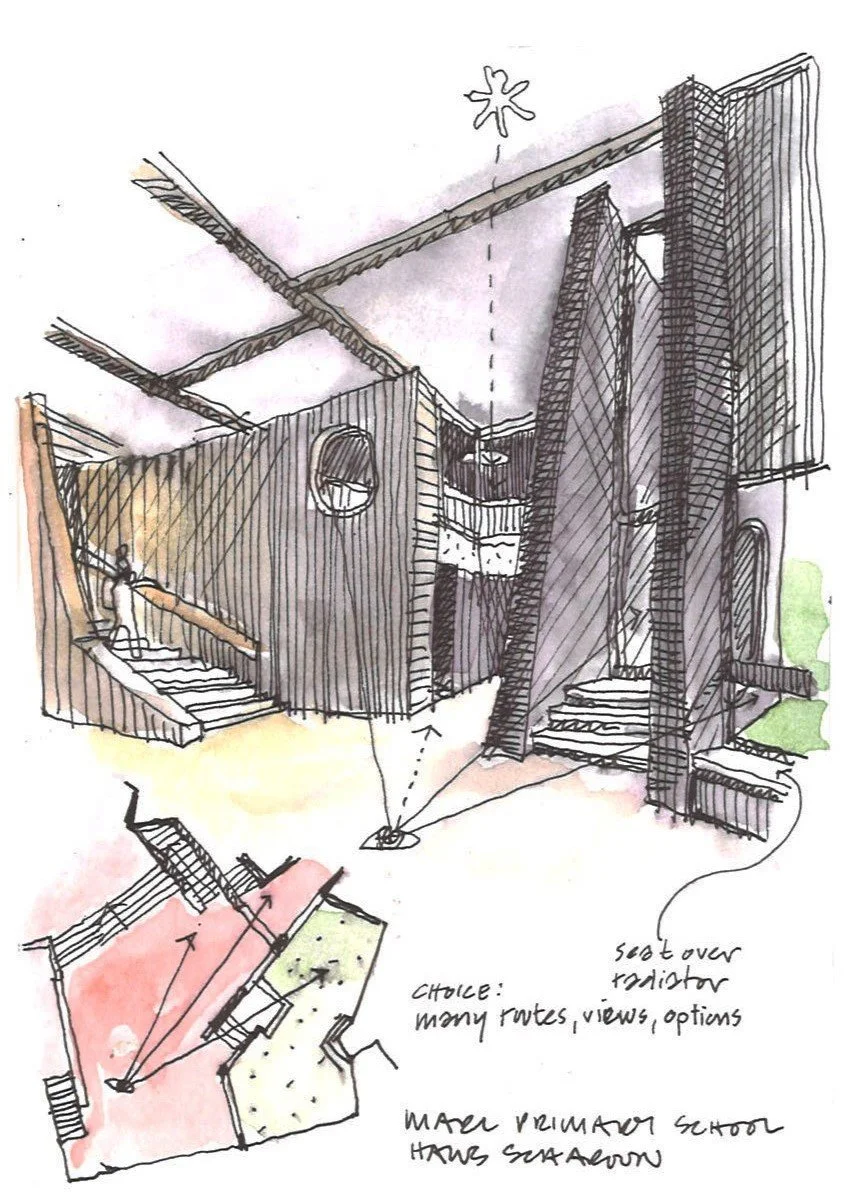 seat over
radiator
CHOICE:
many routes, views, options
MARL PRIMARY SCHOOL
HANS SCHAROUN